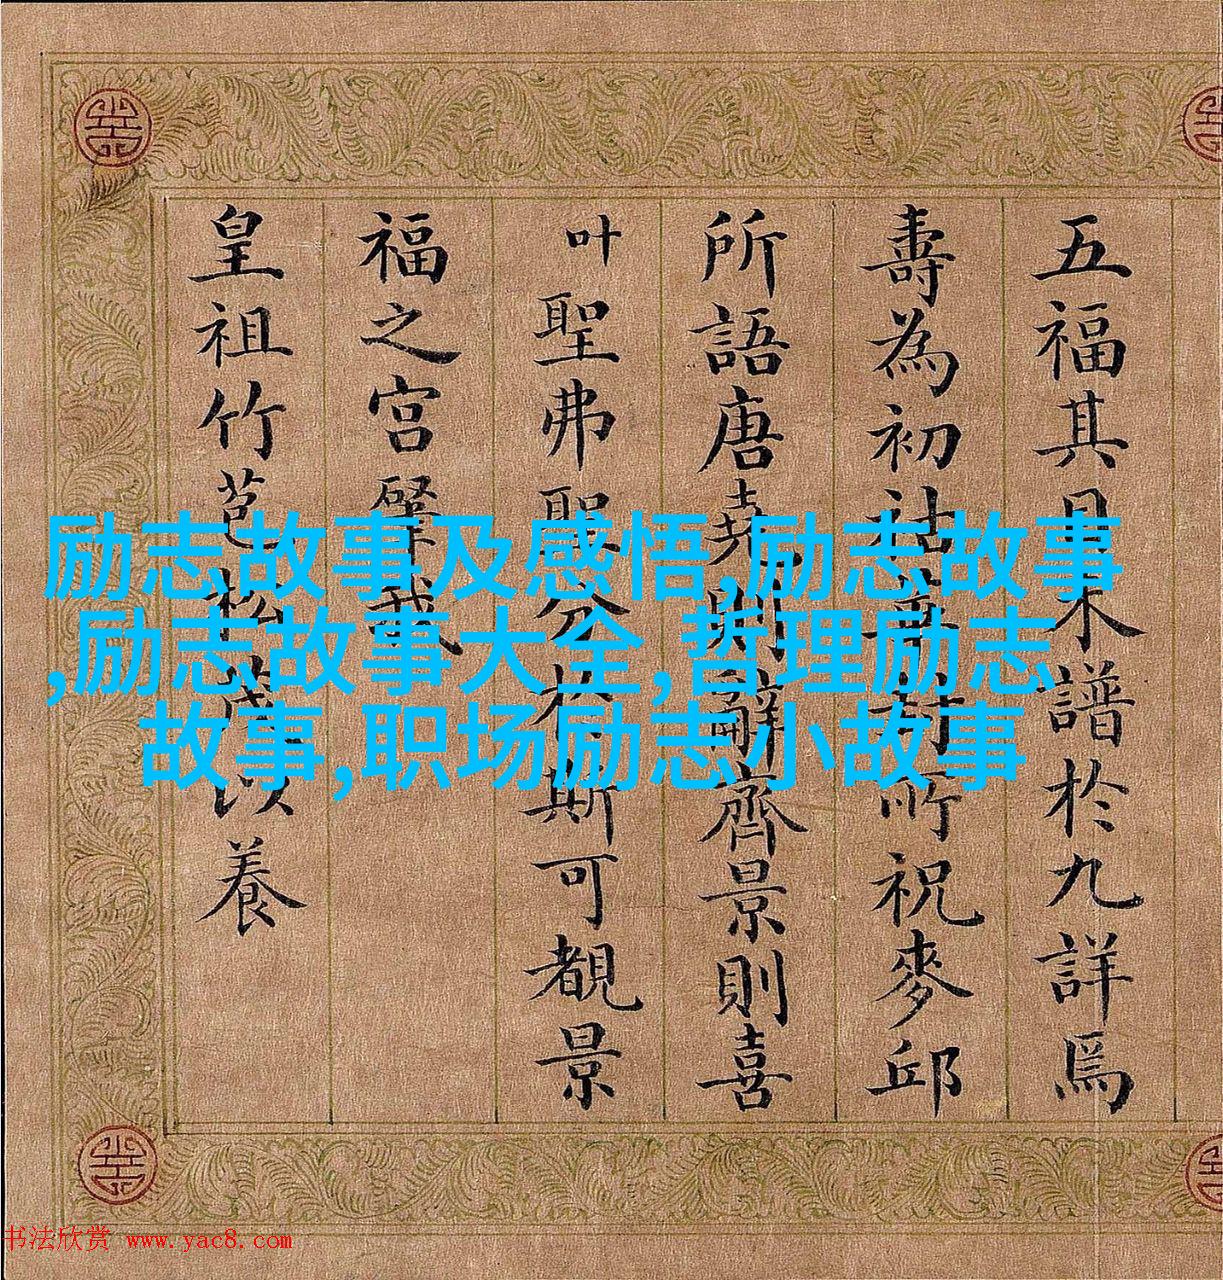 五福其目譜於九詳焉
壽為初祜華封所祝麥邱
所語唐堯則辭齊景則喜
叶聖弗聖分於斯可覩景
福之宮肇我
皇祖竹苞松茂以養
励志故事及感悟,励志故事
,励志故事大全,哲理励志
故事,职场励志小故事
书法欣赏 www.yac8.com